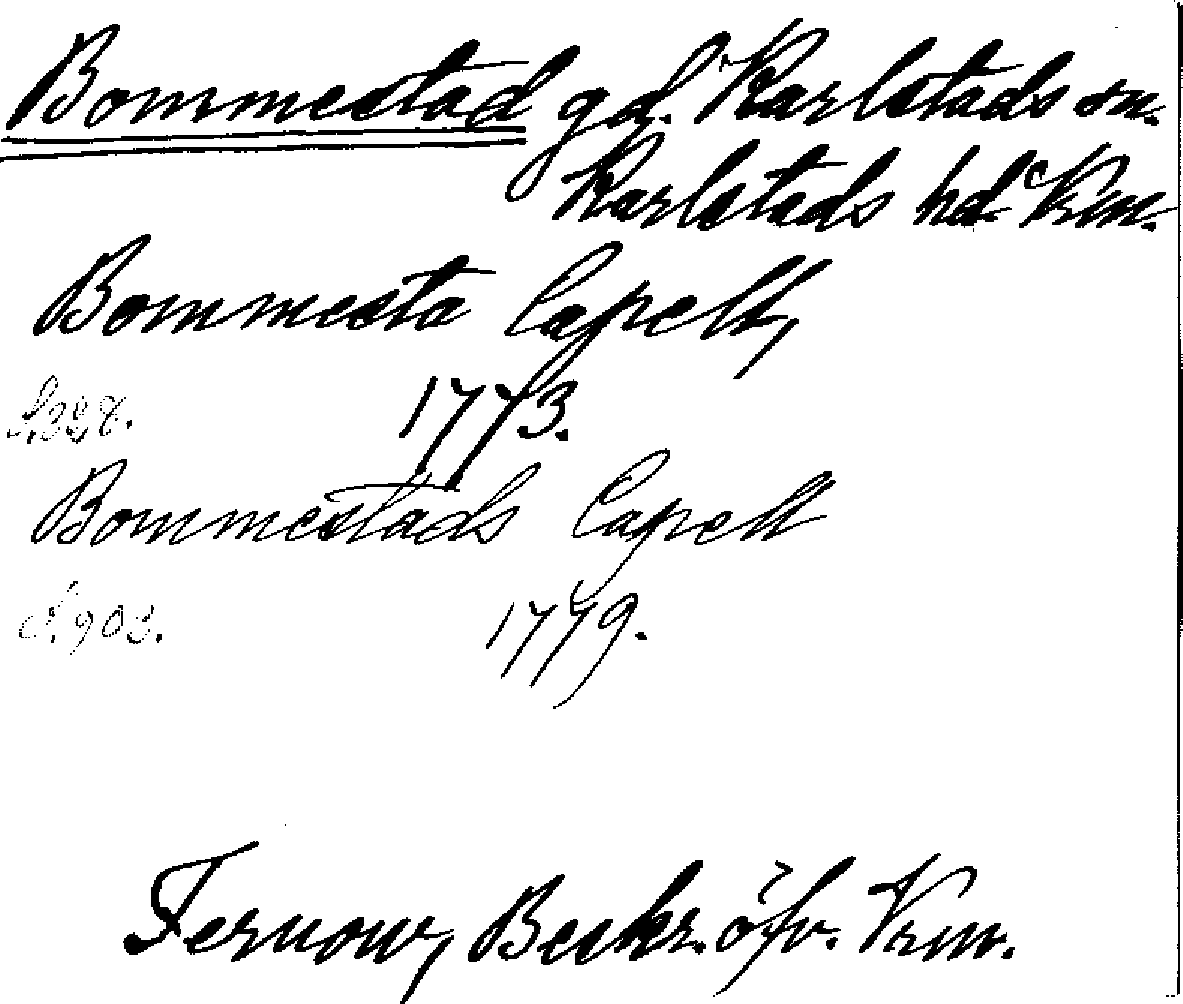 Bommestad gd. Karlstads sn.
Karlstads hd. Vrm.
Bommesta Capell,
S.328. 1773.
Bommestads Capell
S.903. 1779.
Fernow, Beskr. öfv. Vrm.